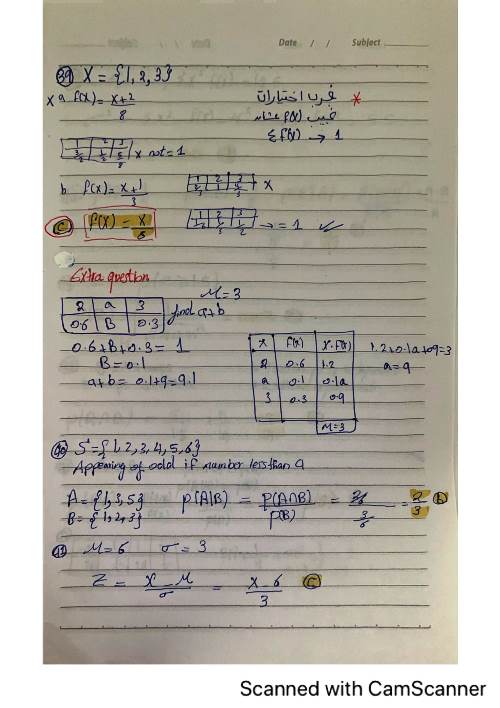 Date / / Subject
39 X = {1, 2, 3}
X a f(x) = x+2/8
نجرب اختيارات
f(x) → 1
X not = 1
b f(x) = x+1/3 X
C f(x) = x/6 → = 1 ✓
Extra question
M = 3
2 a 3 find a+b
0.6 B 0.3
0.6 + B + 0.3 = 1
B = 0.1
a+b = 0.1+9 = 9.1
x f(x) x.f(x)
2 0.6 1.2
a 0.1 0.1a
3 0.3 0.9
M=3
1.2+0.1a+0.9=3
a=9
40 S = {1, 2, 3, 4, 5, 6}
Appearing of odd if number less than 4
A = {1, 3, 5} P(A|B) = P(A∩B)/P(B) = 2/6 / 3/6 = 2/3 b
B = {1, 2, 3}
M = 6 σ = 3
Z = x - M/σ = x - 6/3 C
Scanned with CamScanner